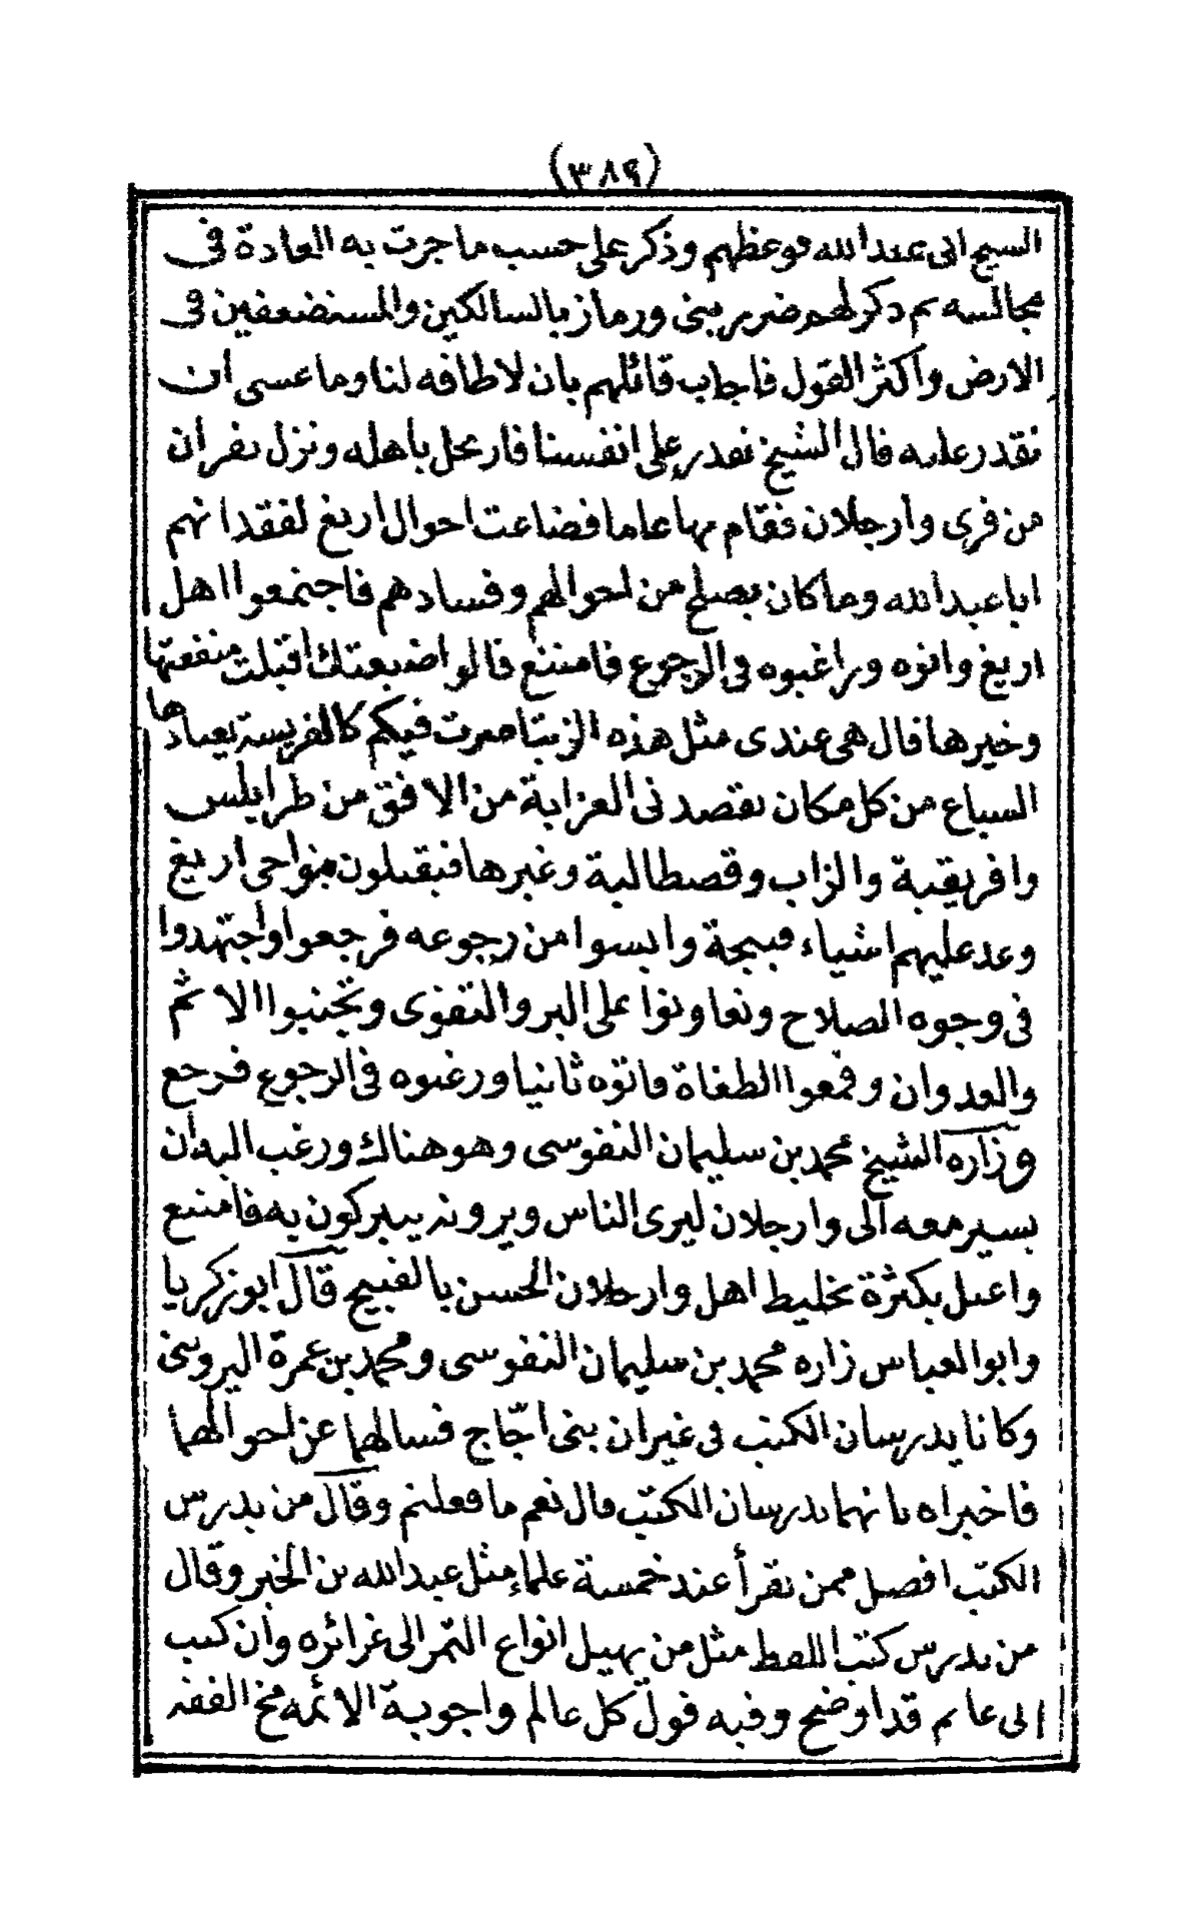 (٣٨٩)
الشيخ ابى عبد الله فوعظهم وذكر على حسب ما جرت به العادة فى
مجالسه ثم ذكر لهم ضرر بنى ورماز بالسالكين والمستضعفين فى
الارض واكثر القول فاجاب قائلهم بان لا طاقه لنا وما عسى ان
نقدر عليه قال الشيخ نقدر على انفسنا فارتحل باهله ونزل بقران
من قرى وارجلان فقام بها عاما فضاعت احوال اريغ لفقدانهم
ابا عبد الله وما كان يصلح من احوالهم وفسادهم فاجتمعوا اهل
اريغ واتوه وراغبوه فى الرجوع فامتنع قالوا ضيعتك اقبلت منفعتها
وخيرها قال هى عندى مثل هذه الزيتا صرت فيكم كالفريسة يعتادها
السباع من كل مكان يقصدنى العزابة من الافق من طرابلس
وافريقية والزاب وقصطالية وغيرها فيقيلون بنواحى اريغ
وعد عليهم اشياء قبيحة وايسوا من رجوعه فرجعوا واجتهدوا
فى وجوه الصلاح وتعاونوا على البر والتقوى وتجنبوا الاثم
والعدوان وقمعوا الطغاة فاتوه ثانيا ورغبوه فى الرجوع فرجع
وزاره الشيخ محمد بن سليمان النفوسى وهو هناك ورغب اليه ان
يسير معه الى وارجلان ليرى الناس ويرونه يتبركون به فامتنع
واعتل بكثرة تخليط اهل وارجلان الحسن بالقبيح قال ابو زكريا
وابو العباس زاره محمد بن سليمان النفوسى ومحمد بن عمرة اليروتنى
وكانا يدرسان الكتب فى غيران بنى اجّاج فسالهما عن احوالهما
فاخبراه بانهما يدرسان الكتب قال نعم ما فعلتم وقال من يدرس
الكتب افضل ممن يقرأ عند خمسة علماء مثل عبد الله بن الخير وقال
من يدرس كتب اللقط مثل من يهيل انواع التمر الى غرائره وان كتب
ابى عانم قد اوضح وفيه قول كل عالم واجوبة الائمه مخ الفقه